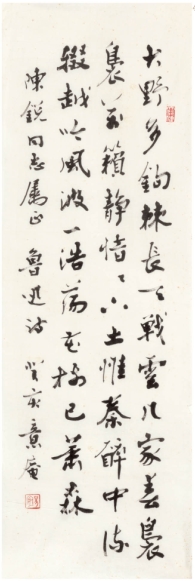 大野多鉤棘長天戰雲几家春裊
裊萬籟靜愔〻下土惟秦醉中流
輟越吟風波一浩蕩花樹已蕭森
陳銳同志屬正 魯迅詩 癸亥 意庵